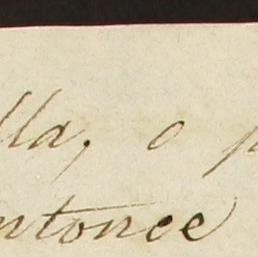 lla; o p
ntonce